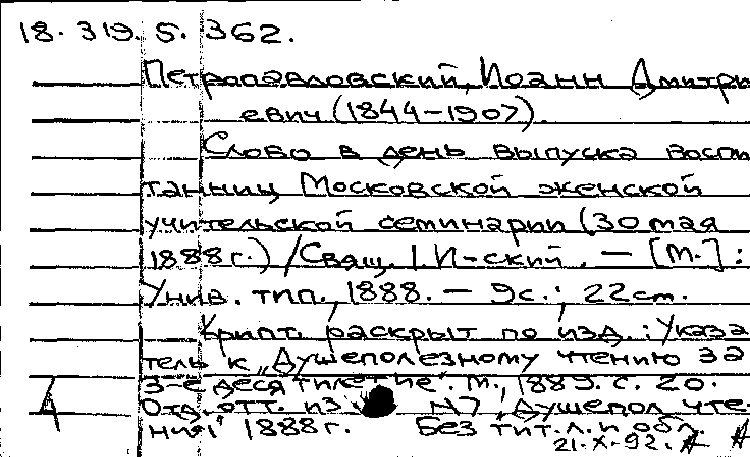 18. 319. 5. 362.
Петропавловский, Иоанн Дмитри
евич (1844-1907).
Слово в день выпуска воспи
танниц Московской женской
учительской семинарии (30 мая
1888 г.) / Свящ. І. П-ский. — [М.] :
Унив. тип., 1888. — 9 с. ; 22 см.
Крипт. раскрыт по изд.: Указа
тель к „Душеполезному чтению за
3-е десятилетие". М., 1889. С. 20.
Отд. отт. из N 7 „Душепол. чте-
ния" 1888 г. Без тит. л. и обл.
21.X.92.